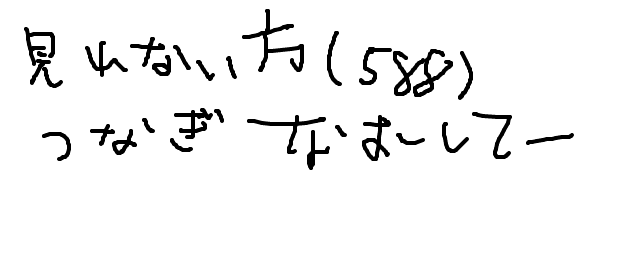 見れない方(588)
つなぎなおしてー